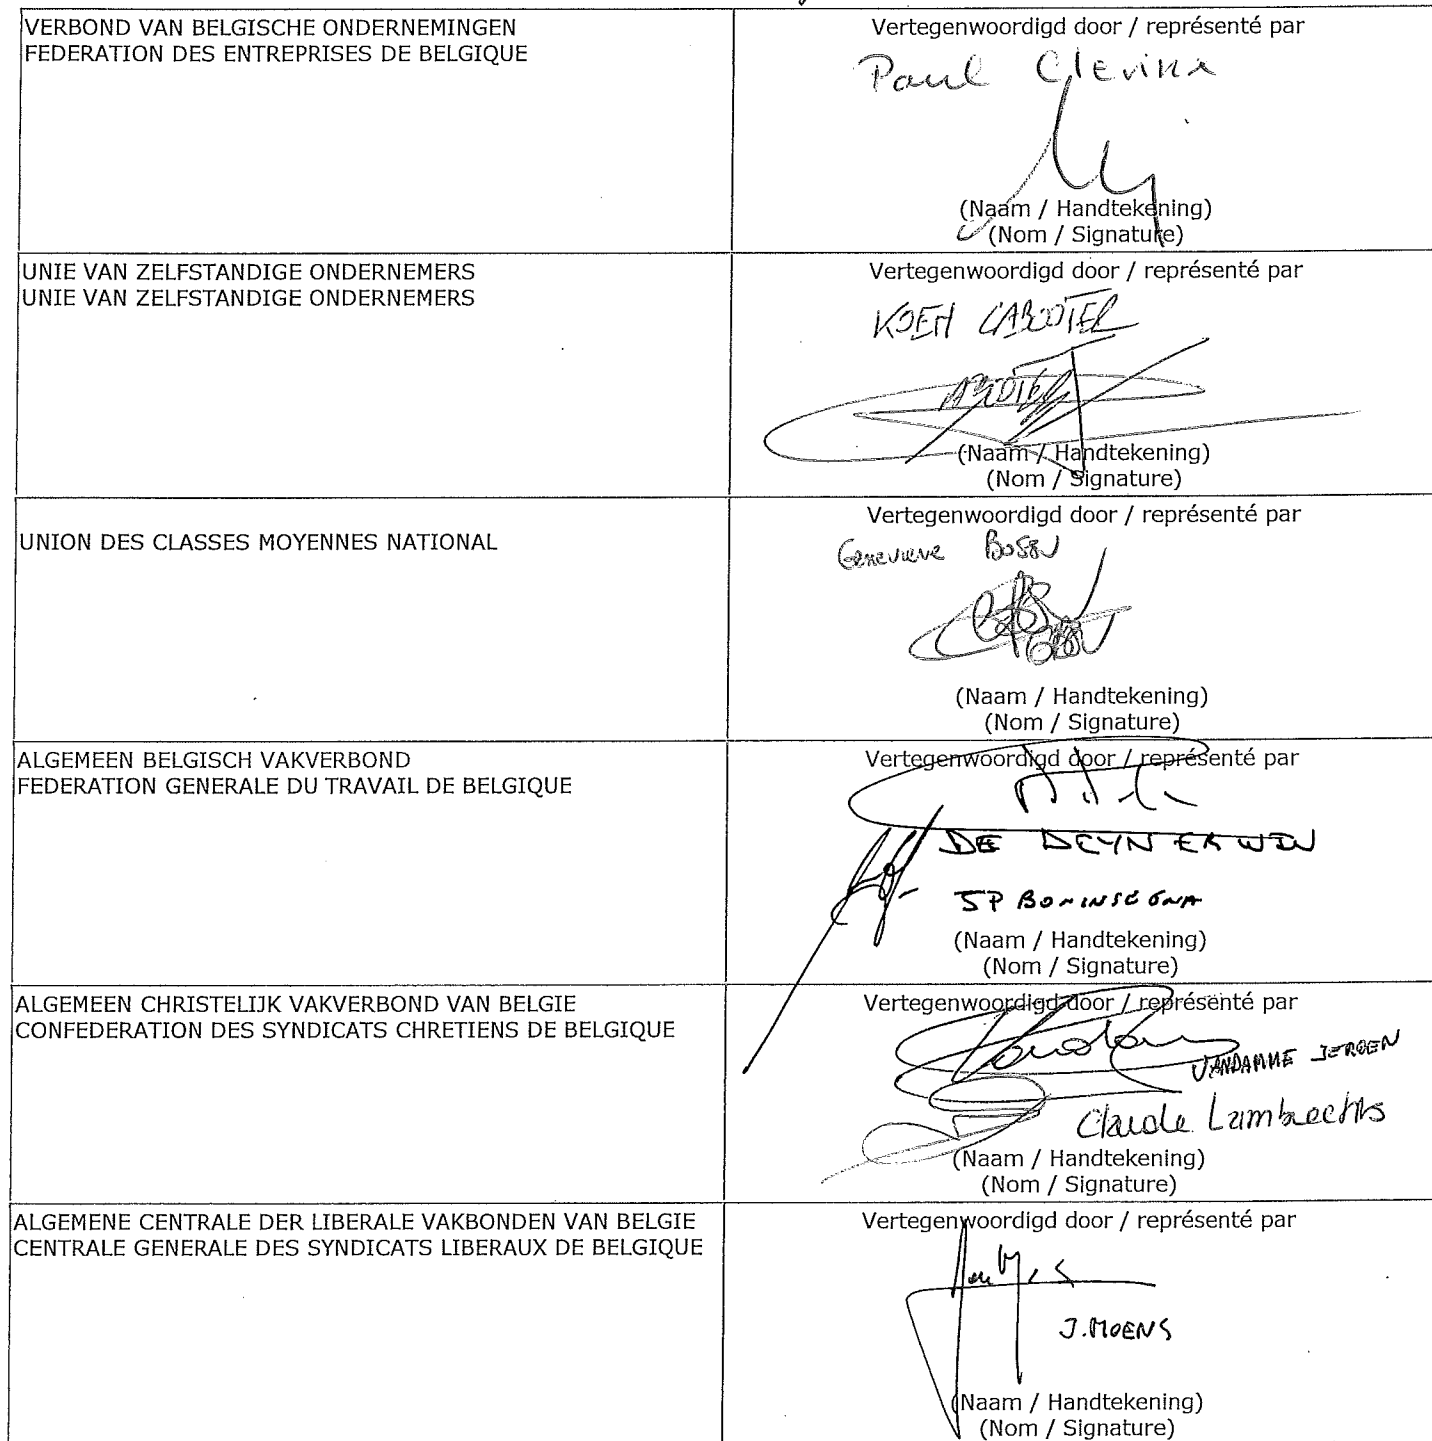 VERBOND VAN BELGISCHE ONDERNEMINGEN
FEDERATION DES ENTREPRISES DE BELGIQUE
Vertegenwoordigd door / représenté par
Paul
(Naam / Handtekening)
(Nom / Signature)
UNIE VAN ZELFSTANDIGE ONDERNEMERS
UNIE VAN ZELFSTANDIGE ONDERNEMERS
Vertegenwoordigd door / représenté par
KOEN CABOOTER
(Naam / Handtekening)
(Nom / Signature)
UNION DES CLASSES MOYENNES NATIONAL
Vertegenwoordigd door / représenté par
Genevieve Bossu
(Naam / Handtekening)
(Nom / Signature)
ALGEMEEN BELGISCH VAKVERBOND
FEDERATION GENERALE DU TRAVAIL DE BELGIQUE
Vertegenwoordigd door / représenté par
DE DEYN ERWIN
JP BONINSEGNA
(Naam / Handtekening)
(Nom / Signature)
ALGEMEEN CHRISTELIJK VAKVERBOND VAN BELGIE
CONFEDERATION DES SYNDICATS CHRETIENS DE BELGIQUE
Vertegenwoordigd door / représenté par
VANDAMME JEROEN
Claude Lambrechts
(Naam / Handtekening)
(Nom / Signature)
ALGEMENE CENTRALE DER LIBERALE VAKBONDEN VAN BELGIE
CENTRALE GENERALE DES SYNDICATS LIBERAUX DE BELGIQUE
Vertegenwoordigd door / représenté par
J.MOENS
(Naam / Handtekening)
(Nom / Signature)